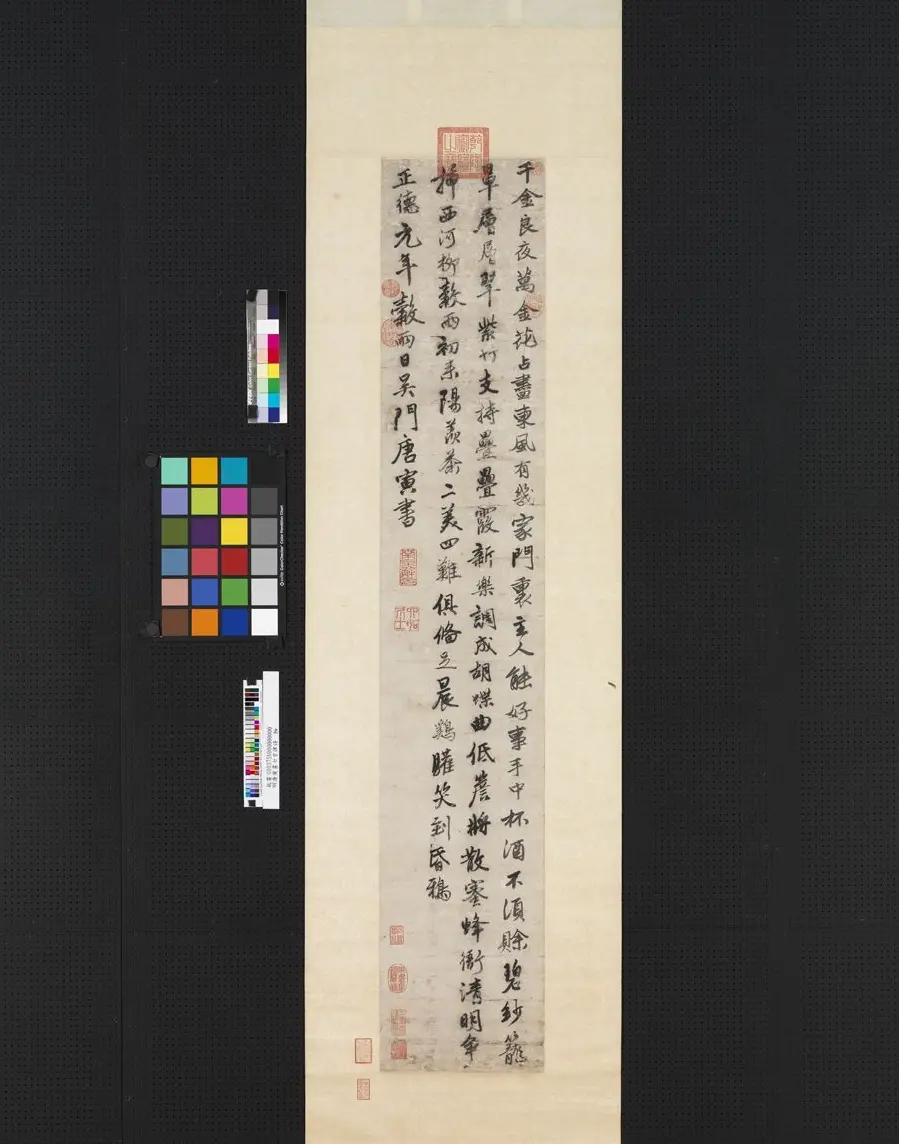 乾隆御覽之寶
千金良夜萬金花占盡東風有幾家門裏主人能好事手中杯酒不須賖碧紗籠
罩層層翠紫竹支持疊疊霞新樂調成胡蝶曲低簷將散蜜蜂衙清明爭
插西河柳穀雨初來陽羨茶二美四難俱備足晨鷄懽笑到昏鴉
正德元年穀雨日吳門唐寅書
南京解元
六如居士